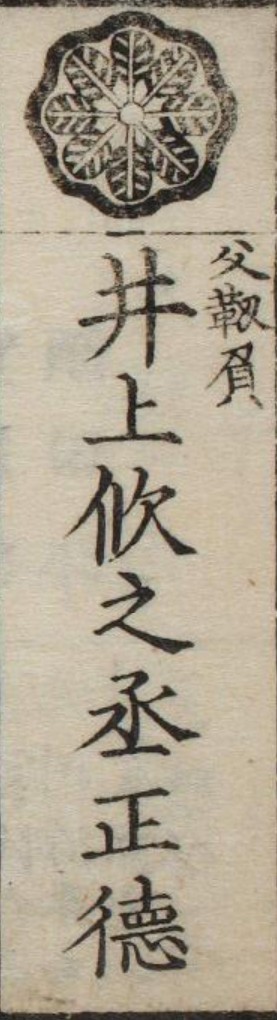 父靱負
井上佽之丞正德